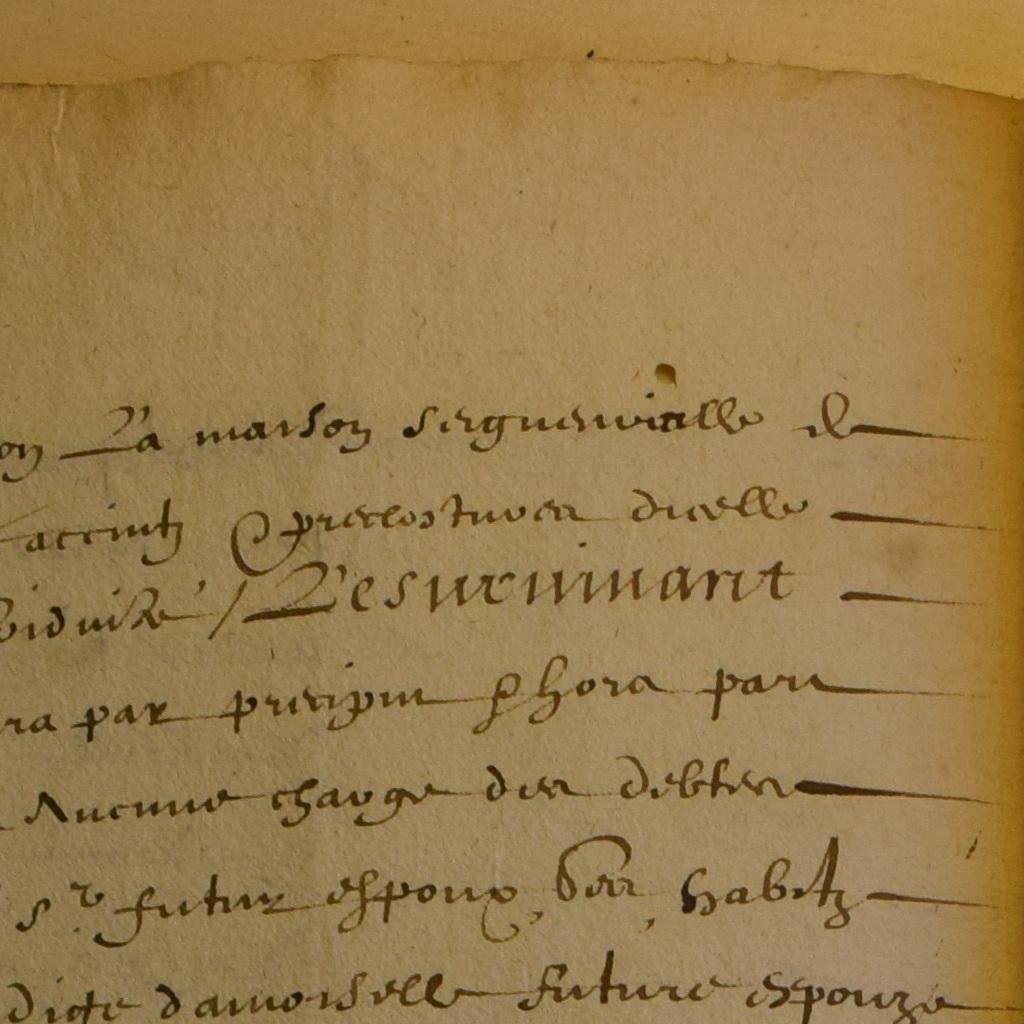 on La maison seigneurialle de
accintz & preclostures dicelle
viduité / Le survivant
ra par precipu & hors part
Aucune charge des debtes
sr futur espoux, ses habitz
dicte damoiselle future espouze